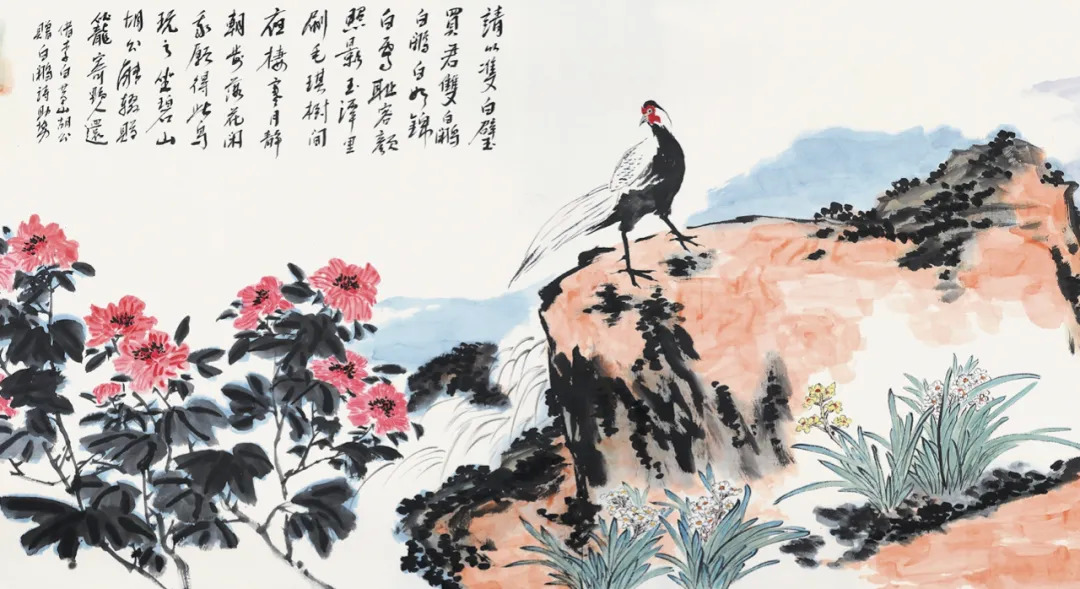 請以雙白璧
買君雙白鷳
白鷳白如錦
白雪耻容顏
照影玉潭里
刷毛琪樹間
夜棲寒月靜
朝步落花閑
我願得此鳥
玩之坐碧山
胡公能輟贈
籠寄野人還
借李白黄山胡公
贈白鷳詩助勢